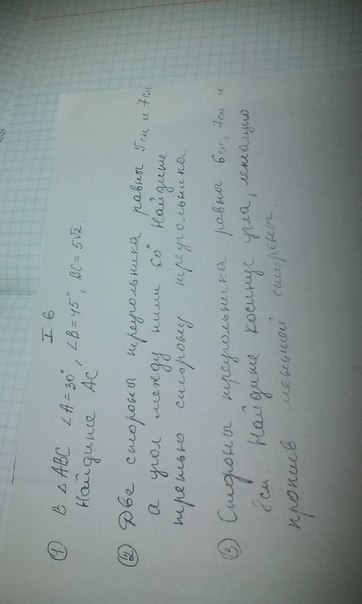 I в
① В △ABC ∠A=30°, ∠B=45°, BC=5√2
Найдите AC
② Две стороны треугольника равны 5см и 7см
а угол между ними 60° Найдите
третью сторону треугольника
③ Стороны треугольника равны 6см, 7см и
8см. Найдите косинус угла, лежащего
против меньшей стороны.